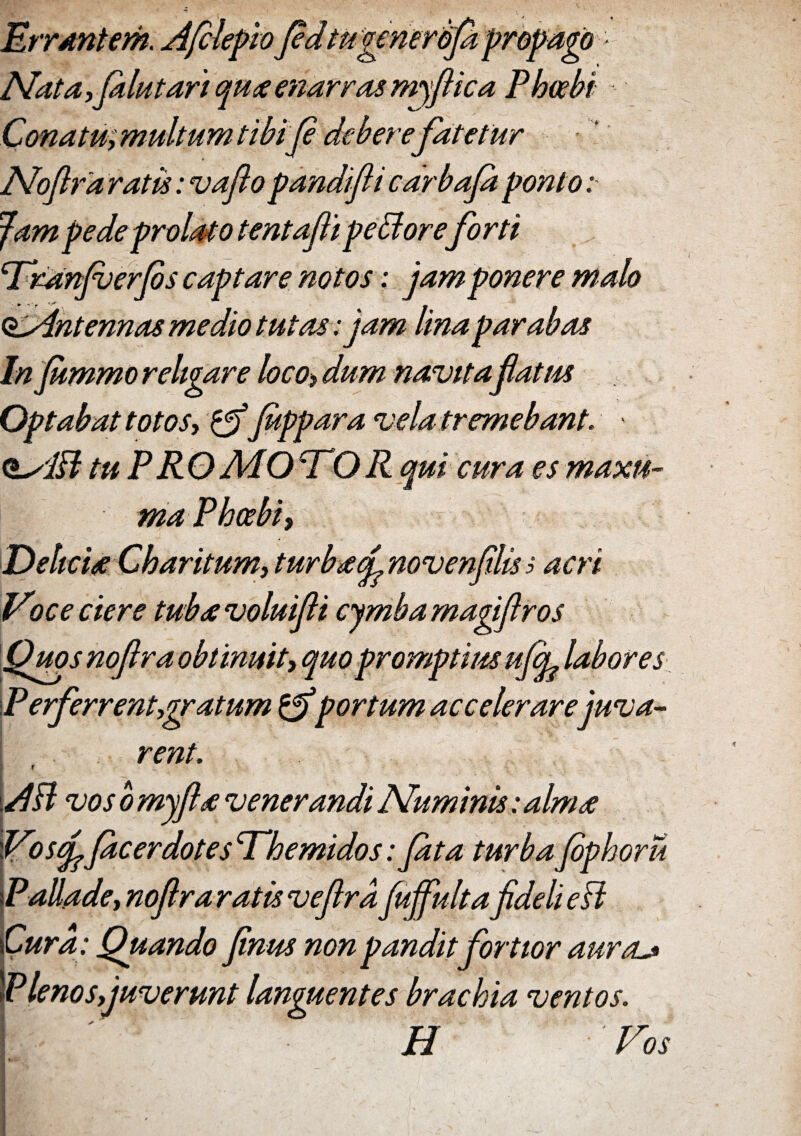 Errantem. Aſclepio ſed tu generoſa propago
Nata, ſalutari quæ enarras myſtica Phœbi
Conatu, multum tibi ſe debere fatetur
Noſtra ratis: vaſto pandiſti carbaſa ponto:
Jam pede prolato tentaſti pectore forti
Tranſverſos captare notos: jam ponere malo
Antennas medio tutas: jam lina parabas
In ſummo religare loco, dum navita flatus
Optabat totos, & ſuppara vela tremebant.
Aſt tu PROMOTOR qui cura es maxu-
ma Phœbi,
Deliciæ Charitum, turbæq; novenſilis; acri
Voce ciere tubæ voluiſti cymba magiſtros
Quos noſtra obtinuit, quo promptius uſq; labores
Perferrent, gratum & portum accelerare juva-
rent.
Aſt vos ò myſtæ venerandi Numinis: almæ
Vosq; ſacerdotes Themidos: ſata turba ſophorũ
Pallade, noſtra ratis veſtrâ ſuffulta fideli eſt
Curâ: Quando ſinus non pandit fortior aura
Plenos, juverunt languentes brachia ventos.
H Vos